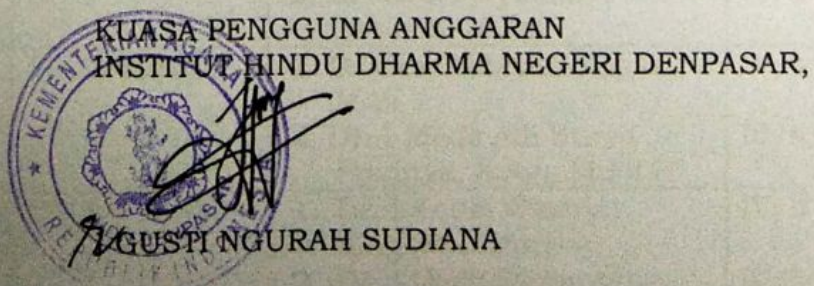 KUASA PENGGUNA ANGGARAN
INSTITUT HINDU DHARMA NEGERI DENPASAR,
KEMENTERIAN AGAMA
REPUBLIK INDONESIA
GUSTI NGURAH SUDIANA